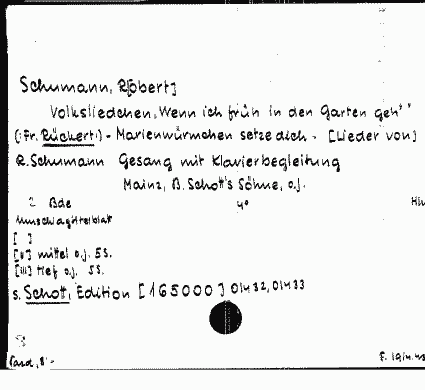 Schumann, R[obert]
Volksliedchen „Wenn ich früh in den Garten geh'"
(:Fr. Rückert:) - Marienwürmchen setze dich - [Lieder von]
R. Schumann Gesang mit Klavierbegleitung
Mainz, B. Schott's Söhne, o.j.
2 Bde 4°
Umschlagtitelblatt
[ ]
[II] mittel o.j. 5 S.
[III] tief o.j. 5 S.
s. Schott, Edition [165000] 01432, 01433